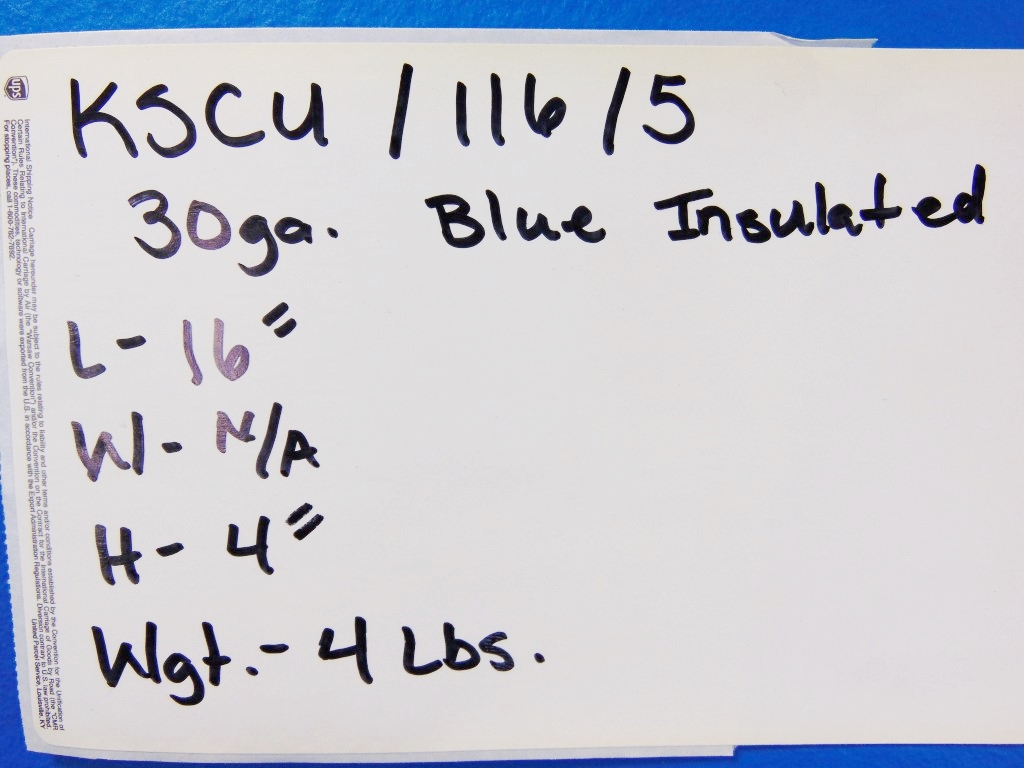 KSCU / 116 / 5
30ga. Blue Insulated
L- 16"
W- N/A
H- 4"
Wgt.- 4 Lbs.
ups
International Shipping Notice Carriage hereunder may be subject to the rules relating to liability and other terms and/or conditions established by the Convention for the Unification of
Certain Rules Relating to International Carriage by Air (the "Warsaw Convention") and/or the Convention on the Contract for the International Carriage of Goods by Road (the "CMR
Convention"). These commodities, technology or software were exported from the U.S. in accordance with the Export Administration Regulations. Diversion contrary to U.S. law prohibited.
For shipping places, call 1-800-782-7892. United Parcel Service, Louisville, KY